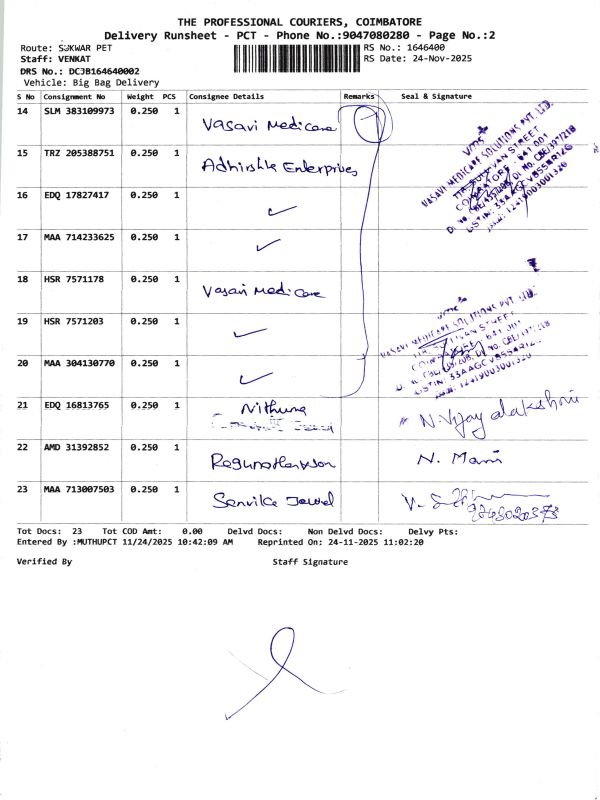 THE PROFESSIONAL COURIERS, COIMBATORE
Delivery Runsheet - PCT - Phone No.:9047080280 - Page No.:2
Route: SUKWAR PET
RS No.: 1646400
Staff: VENKAT
RS Date: 24-Nov-2025
DRS No.: DCJB164640002
Vehicle: Big Bag Delivery
S No Consignment No Weight PCS Consignee Details Remarks Seal & Signature
14 SLM 383109973 0.250 1 Vasavi Medicare
15 TRZ 205388751 0.250 1 Enterprises
16 EDQ 17827417 0.250 1 ✓
17 MAA 714233625 0.250 1 ✓
18 HSR 7571178 0.250 1 Vasavi Medicare
19 HSR 7571203 0.250 1 ✓
20 MAA 304130770 0.250 1 ✓
21 EDQ 16813765 0.250 1 Nithuna N. Vijayalakshmi
22 AMD 31392852 0.250 1 N. Mani
23 MAA 713007503 0.250 1 Senvika Jewel
VMS
VASAVI MEDICARE SOLUTIONS PVT. LTD.
VASAVI MEDICARE SOLUTIONS PVT. LTD.
Tot Docs: 23 Tot COD Amt: 0.00 Delvd Docs: Non Delvd Docs: Delvy Pts:
Entered By :MUTHUPCT 11/24/2025 10:42:09 AM Reprinted On: 24-11-2025 11:02:20
Verified By Staff Signature